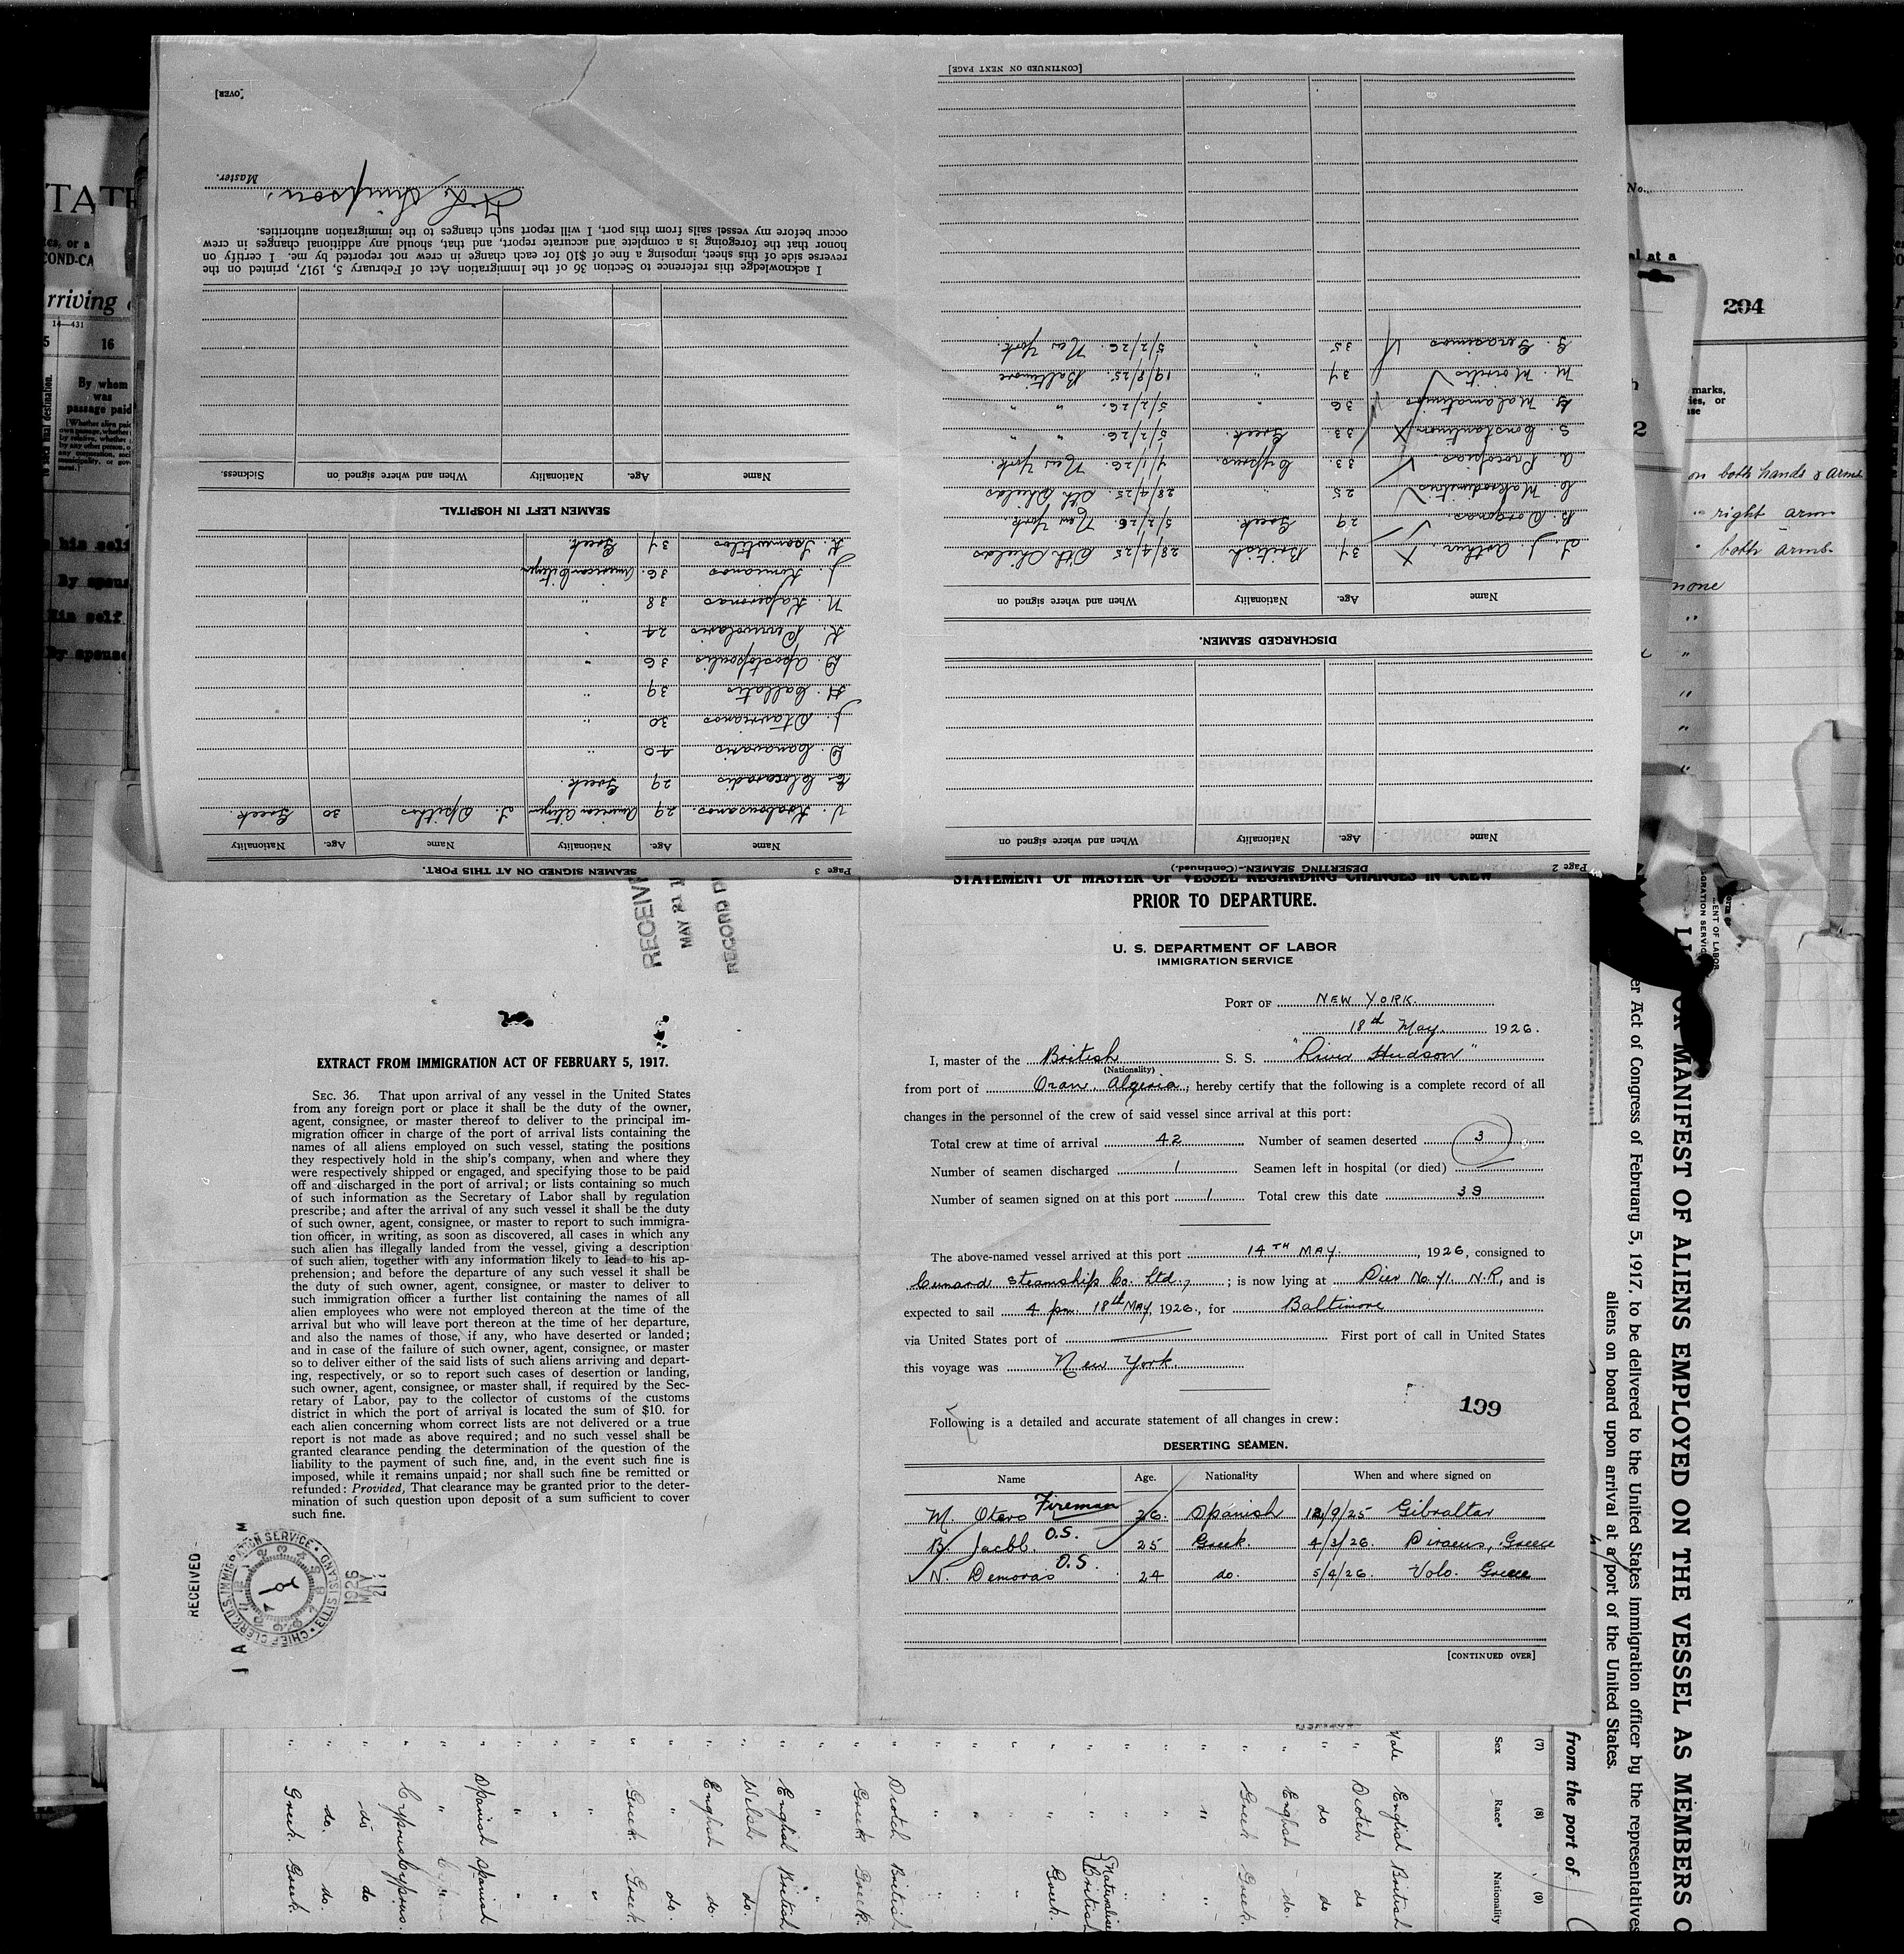 STATEMENT OF MASTER OF VESSEL REGARDING CHANGES IN CREW
PRIOR TO DEPARTURE.
U. S. DEPARTMENT OF LABOR
IMMIGRATION SERVICE
PORT OF NEW YORK.
18th May 1926.
I, master of the British S. S. "River Hudson"
(Nationality)
from port of Oran, Algeria, hereby certify that the following is a complete record of all
changes in the personnel of the crew of said vessel since arrival at this port:
Total crew at time of arrival 42 Number of seamen deserted 3
Number of seamen discharged 1 Seamen left in hospital (or died)
Number of seamen signed on at this port 1 Total crew this date 39
The above-named vessel arrived at this port 14TH MAY., 1926, consigned to
Cunard Steamship Co. Ltd.,; is now lying at Pier No. 71. N.R., and is
expected to sail 4 pm 18th MAY, 1926., for Baltimore
via United States port of First port of call in United States
this voyage was New York.
199
Following is a detailed and accurate statement of all changes in crew:
DESERTING SEAMEN.
Name Age. Nationality When and where signed on
M. Otero Fireman 26. Spanish 12/9/25 Gibraltar
B. Jacbb. O.S. 25 Greek. 4/3/26. Piraeus, Greece
N. Demoras O.S. 24 do. 5/4/26. Volo. Greece
[CONTINUED OVER]
RECEIV
MAY 21 1
RECORD D
EXTRACT FROM IMMIGRATION ACT OF FEBRUARY 5, 1917.
SEC. 36. That upon arrival of any vessel in the United States
from any foreign port or place it shall be the duty of the owner,
agent, consignee, or master thereof to deliver to the principal im-
migration officer in charge of the port of arrival lists containing the
names of all aliens employed on such vessel, stating the positions
they respectively hold in the ship's company, when and where they
were respectively shipped or engaged, and specifying those to be paid
off and discharged in the port of arrival; or lists containing so much
of such information as the Secretary of Labor shall by regulation
prescribe; and after the arrival of any such vessel it shall be the duty
of such owner, agent, consignee, or master to report to such immigra-
tion officer, in writing, as soon as discovered, all cases in which any
such alien has illegally landed from the vessel, giving a description
of such alien, together with any information likely to lead to his ap-
prehension; and before the departure of any such vessel it shall be
the duty of such owner, agent, consignee, or master to deliver to
such immigration officer a further list containing the names of all
alien employees who were not employed thereon at the time of the
arrival but who will leave port thereon at the time of her departure,
and also the names of those, if any, who have deserted or landed;
and in case of the failure of such owner, agent, consignee, or master
so to deliver either of the said lists of such aliens arriving and depart-
ing, respectively, or so to report such cases of desertion or landing,
such owner, agent, consignee, or master shall, if required by the Sec-
retary of Labor, pay to the collector of customs of the customs
district in which the port of arrival is located the sum of $10. for
each alien concerning whom correct lists are not delivered or a true
report is not made as above required; and no such vessel shall be
granted clearance pending the determination of the question of the
liability to the payment of such fine, and, in the event such fine is
imposed, while it remains unpaid; nor shall such fine be remitted or
refunded: Provided, That clearance may be granted prior to the deter-
mination of such question upon deposit of a sum sufficient to cover
such fine.
RECEIVED
CHIEF CLERK, U.S. IMMIGRATION SERVICE · ELLIS ISLAND
1926
MAY
21
Page 2
DESERTING SEAMEN-(Continued.)
Name Age. Nationality When and where signed on
DISCHARGED SEAMEN.
Name Age. Nationality When and where signed on
T. J. Arthur. 34 British 28/4/25 Sth Shields
B. Dorganas. 29 Greek. 5/2/26. New York.
C. Makrodimitris 25 " 28/4/25. Sth Shields
A. Procopias. 33. Cyprus. 4/1/26. New York.
S. Constantinou 33. Greek. 5/2/26. " "
G. Malamatinas 36 5/2/26. " "
M. Moiritis 34 " 19/8/25. Baltimore
G. Gerasimos 35 " 5/2/26. New York.
[CONTINUED ON NEXT PAGE]
Page 3
SEAMEN SIGNED ON AT THIS PORT.
Name Age. Nationality Name Age. Nationality
29 American Citizen T. Spithos 30 Greek.
29 Greek.
D. Canavaris 40 "
J. Stavrianos 30 "
H. Callatis 39 "
D. Apostopoulis 36 "
24 "
N. Kaperonas 38 "
J. Kimianos 36. American Citizen
34 Greek.
SEAMEN LEFT IN HOSPITAL.
Name Age. Nationality When and where signed on Sickness.
I acknowledge this reference to Section 36 of the Immigration Act of February 5, 1917, printed on the
reverse side of this sheet, imposing a fine of $10 for each change in crew not reported by me. I certify on
honor that the foregoing is a complete and accurate report, and that, should any additional changes in crew
occur before my vessel sails from this port, I will report such changes to the immigration authorities.
Simpson.
Master.
[OVER]
TATE
COND-CA
rriving
14-431
16
By whom
was
passage paid
his self
By spous
His self
By spouse
No.
al at a
204
marks,
on both hands & arms
right arm
" both arms.
none
MANIFEST OF ALIENS EMPLOYED ON THE VESSEL AS MEMBERS O
er Act of Congress of February 5, 1917, to be delivered to the United States immigration officer by the representatives
aliens on board upon arrival at a port of the United States.
from the port of
(7) (8) (9)
Sex Race* Nationality
Male English British
" Scotch do
" do do
" English do.
" Greek Greek.
Naturalised British
Greek.
" Scotch British
" Greek Greek.
" English British
" Welsh do.
" English do.
" " do.
" Greek Greek.
" Spanish Spanish
" Cyprus Cyprus.
" do do
" do. do.
" Greek. Greek.